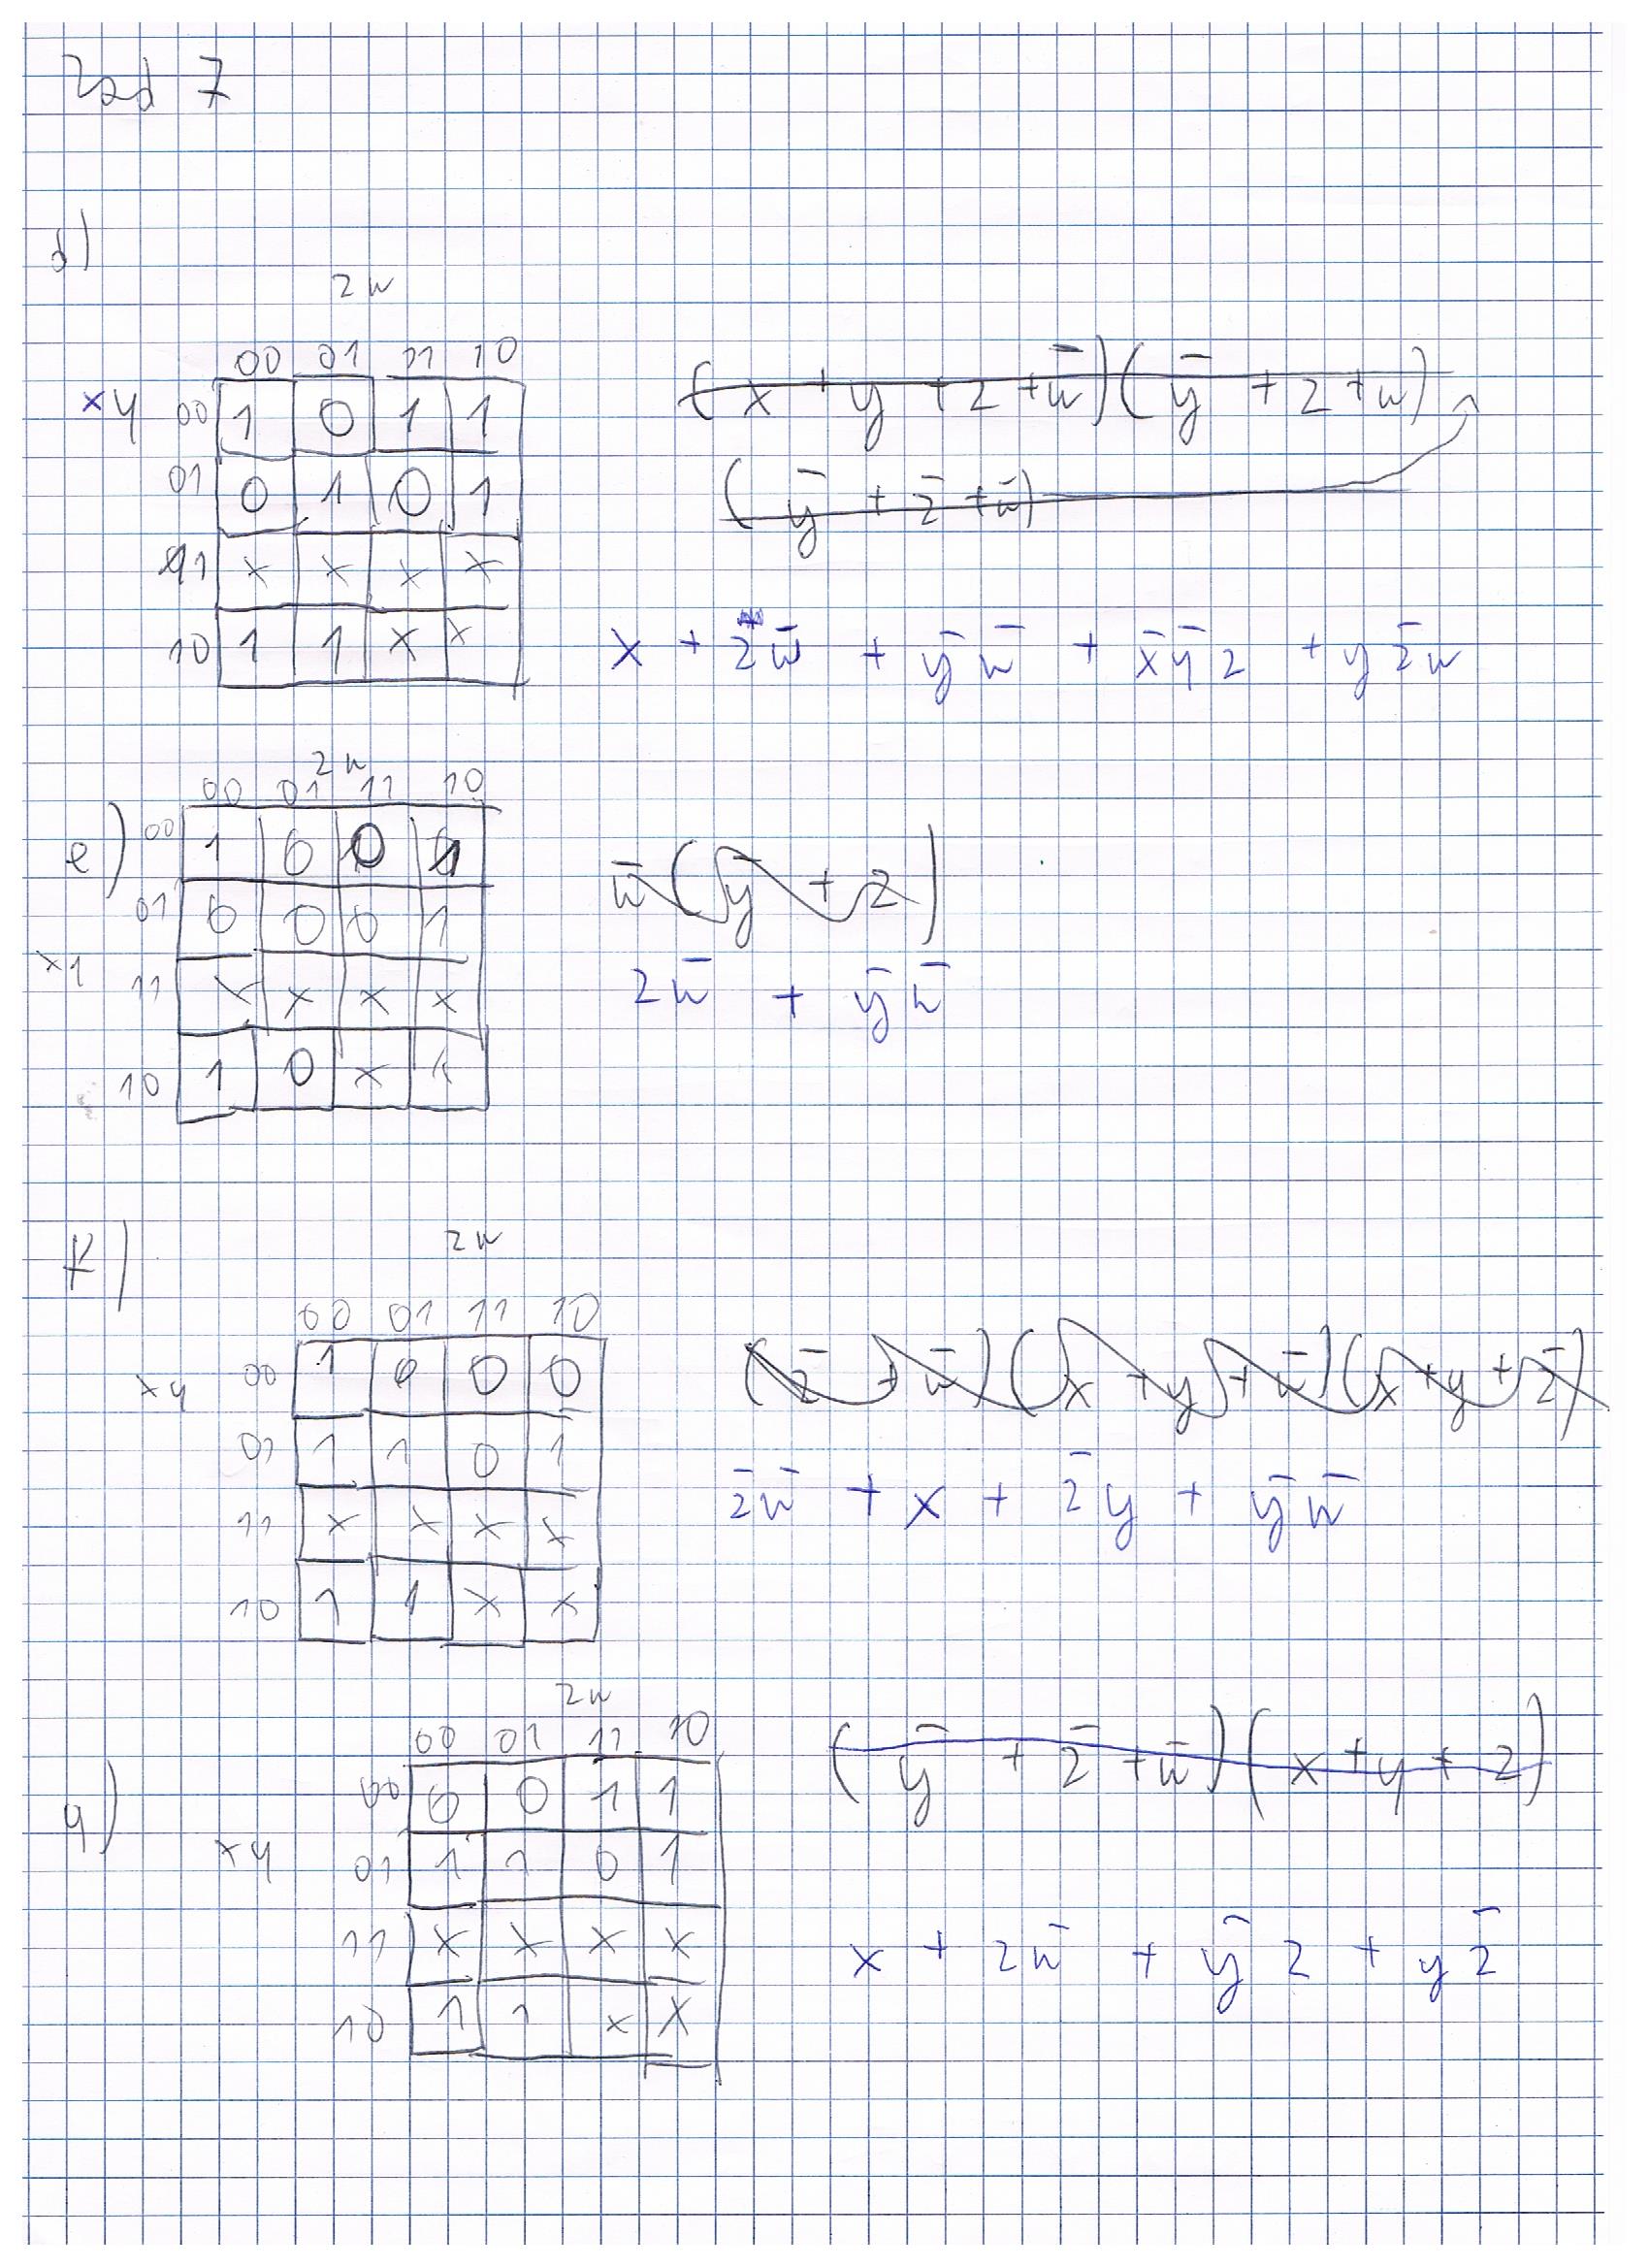 Zad 7
d)
zw
00 01 11 10
xy 00 1 0 1 1
01 0 1 0 1
11 x x x x
10 1 1 x x
(x + y + z + w̄)(ȳ + z + w)
(ȳ + z̄ + w̄)
x + z w̄ + ȳ w̄ + x̄ ȳ z + y z̄ w
zw
00 01 11 10
e) 00 1 0 0 1
01 0 0 0 1
11 x x x x
10 1 0 x x
w̄ (ȳ + z)
z w̄ + ȳ w̄
f)
zw
00 01 11 10
xy 00 1 0 0 0
01 1 1 0 1
11 x x x x
10 1 1 x x
(z̄ + w̄)(x + y + w̄)(x + y + z̄)
z̄ w̄ + x + z̄ y + ȳ w̄
g)
zw
00 01 11 10
00 0 0 1 1
xy 01 1 1 0 1
11 x x x x
10 1 1 x x
(ȳ + z̄ + w̄)(x + y + z)
x + z w̄ + ȳ z + y z̄